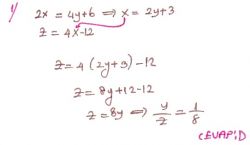 1)
2x = 4y+6 ⟹ x = 2y+3
z = 4x-12
z = 4(2y+3)-12
z = 8y+12-12
z = 8y ⟺ y/z = 1/8
CEVAP: D